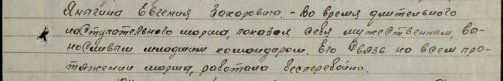 Янагина Евгения Захаровича. - Во время длительного
наступательного марша, показал себя мужественным, вы-
носливым младшим командиром. Его связь на всем про-
тяжении марша, работала бесперебойно.